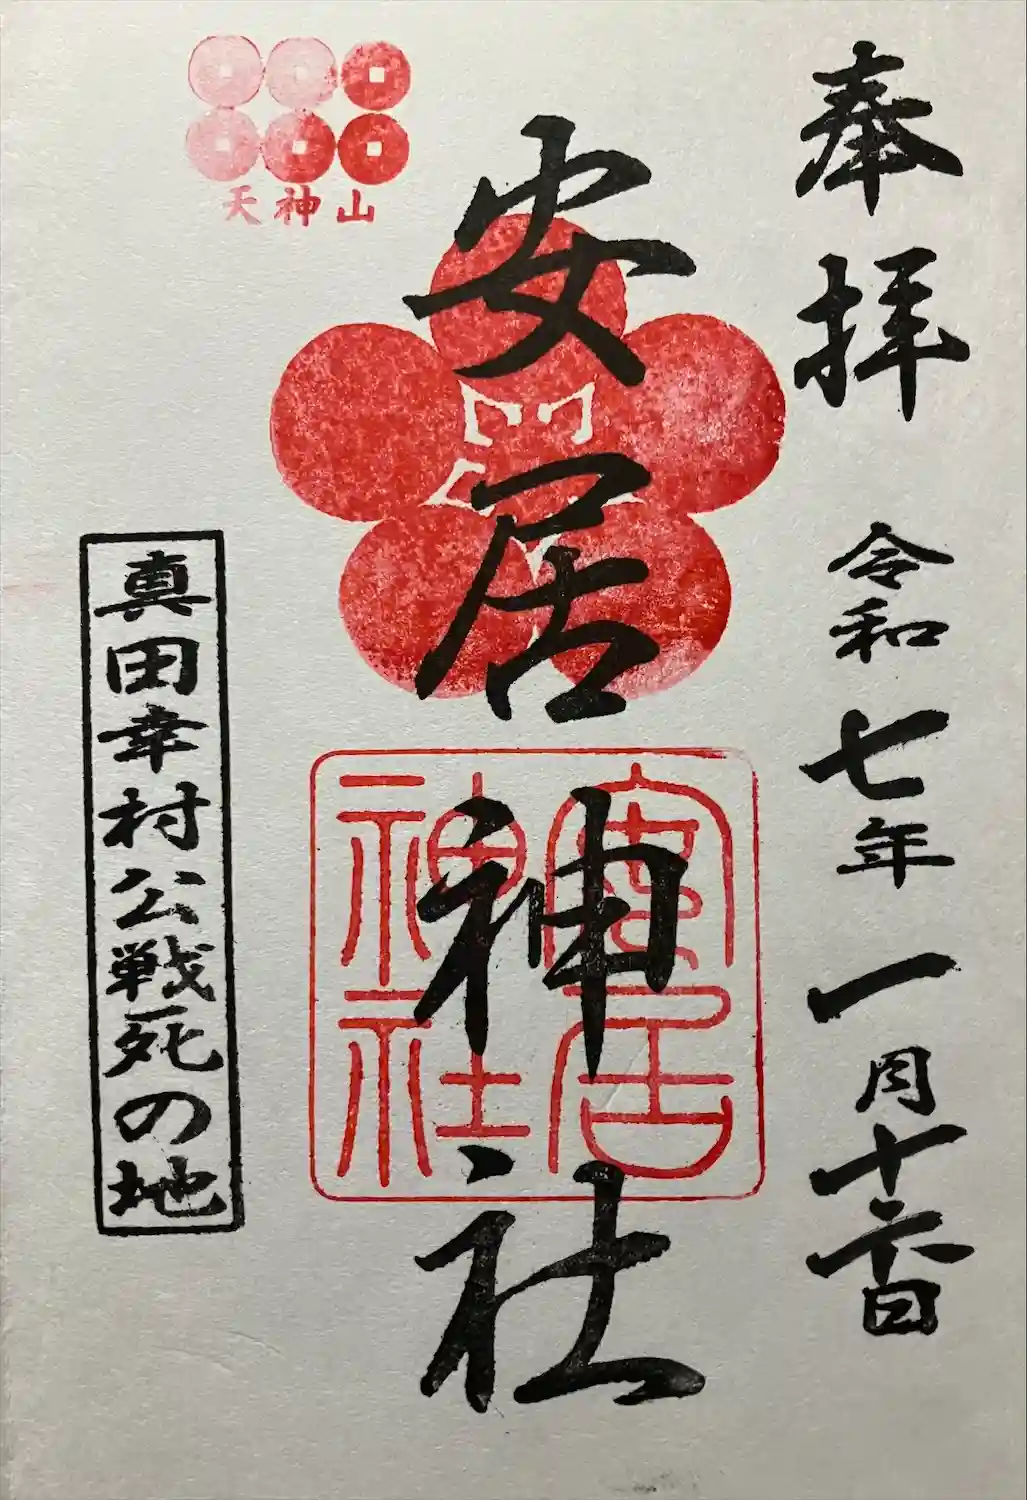 奉拝
令和七年一月十六日
安居神社
安居
神社
天神山
真田幸村公戦死の地